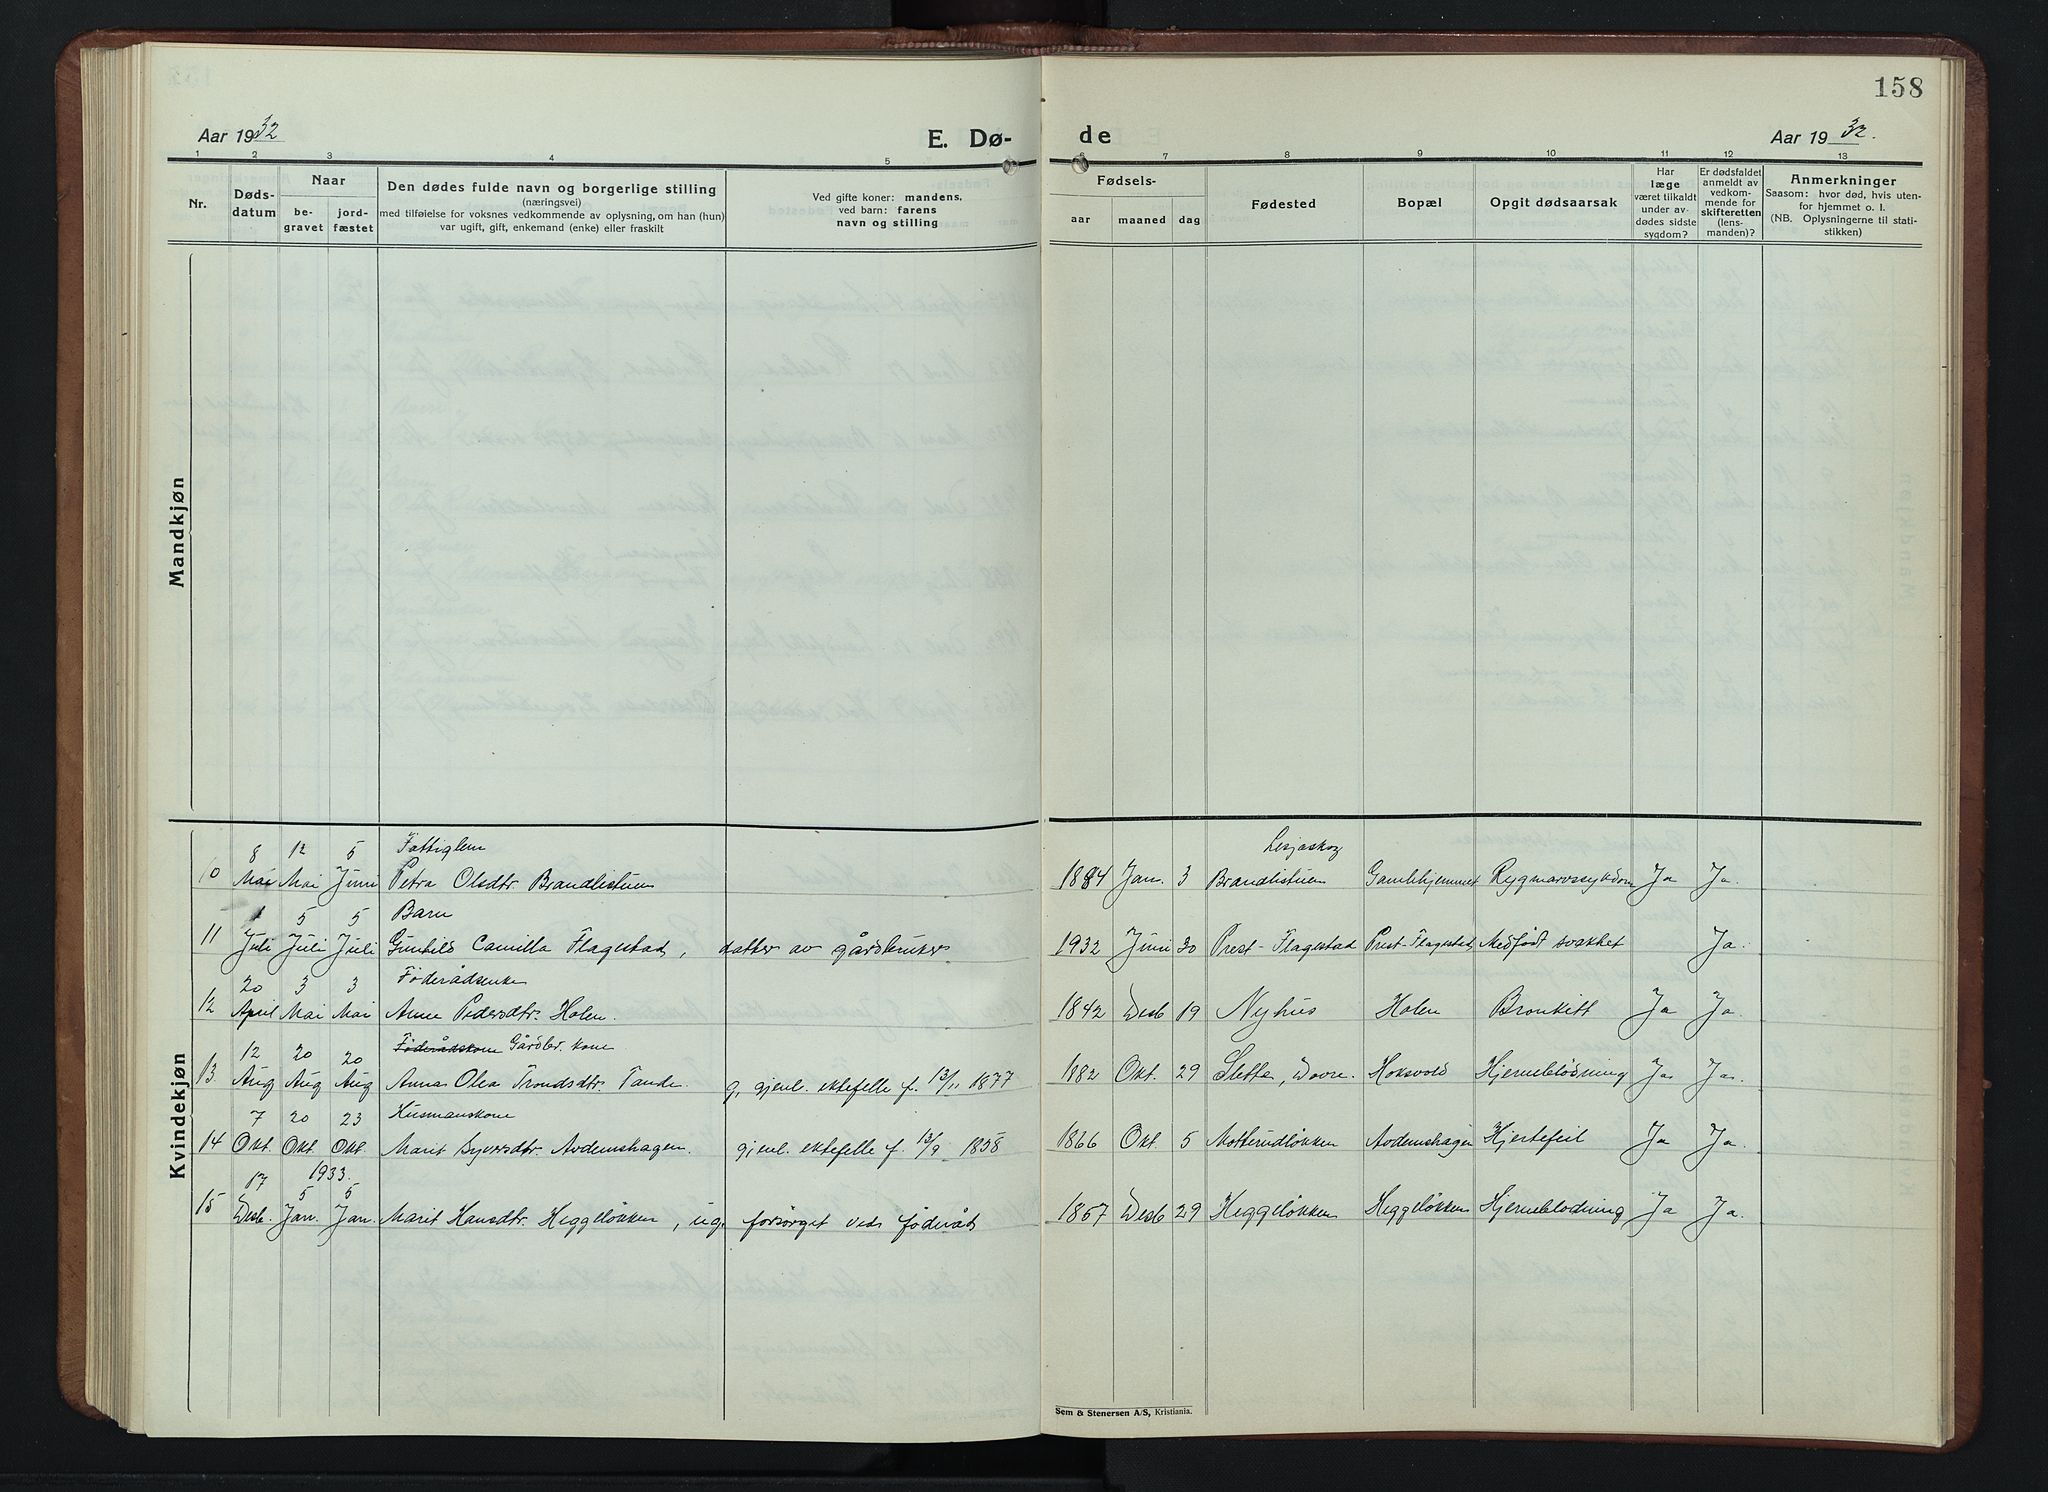 158
Aar 1932
E. Dø-
de
Aar 1932.
1 2 3 4 5 6 7 8 9 10 11 12 13
Nr.
Døds-
datum
Naar
be-
gravet
jord-
fæstet
Den dødes fulde navn og borgerlige stilling
(næringsvei)
med tilføielse for voksnes vedkommende av oplysning, om han (hun)
var ugift, gift, enkemand (enke) eller fraskilt
Ved gifte koner: mandens,
ved barn: farens
navn og stilling
Fødsels-
aar maaned dag
Fødested
Bopæl
Opgit dødsaarsak
Har
læge
været tilkaldt
under av-
dødes sidste
sygdom?
Er dødsfaldet
anmeldt av
vedkom-
mende for
skifteretten
(lens-
manden)?
Anmerkninger
Saasom: hvor død, hvis uten-
for hjemmet o. l.
(NB. Oplysningerne til stati-
stikken)
Mandkjøn
Kvindekjøn
8 12 5 Fattiglem Lesjaskog
10 Mai Mai Juni Petra Olsdtr. Brandlistuen 1884 Jan. 3 Brandlistuen Gamlehjemmet Rygmarvssykdom Ja Ja.
1 5 5 Barn
11 Juli Juli Juli Gunhild Camilla Flagestad, datter av gårdbruker. 1932 Juni 30 Prest-Flagestad Prest-Flagestad Medfødt svakhet Ja.
20 3 3 Föderådsenke
12 April Mai Mai Anne Pedersdtr. Holen. 1842 Desb 19 Nyhus Holen Bronkitt Ja Ja.
12 20 20 Föderådskone Gårdbr. kone
13. Aug Aug Aug Anna Olea Trondsdtr. Tande. g, gjenl. ektefelle f. 13/11 1877 1882 Okt. 29 Slette, Dovre. Hoksvold Hjerneblödning Ja Ja.
7 20 23 Husmanskone
14 Okt. Okt. Okt. Marit Syversdtr. Avdemshagen. gjenl. ektefelle f. 13/9 1858 1866 Okt 5 Motterudløkken Avdemshagen Hjertefeil Ja Ja.
17 1933. 5 5
15 Desb. Jan. Jan. Marit Hansdtr. Heggeløkken, ug. forsörget ved föderåd 1857 Desb 29 Heggeløkken Heggeløkken Hjerneblodning Ja Ja.
Sem & Stenersen A/S, Kristiania.